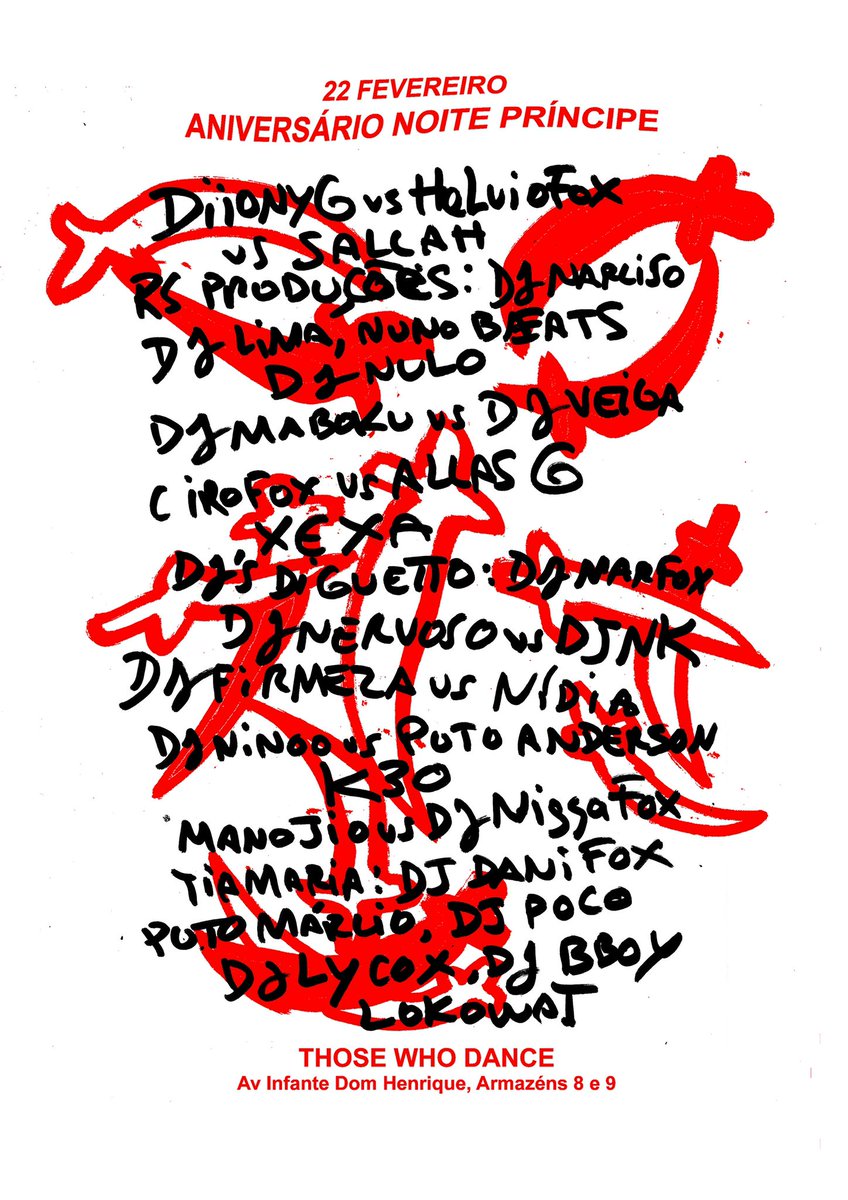 22 FEVEREIRO
ANIVERSÁRIO NOITE PRÍNCIPE
DiiONYG vs HeLvioFox
vs SALLAH
RS PRODUÇÕES: DJ NARCISO
DJ LiMA, NUNO BEATS
DJ NULO
DJ MABOKU vs DJ VEIGA
CiROFOX vs ALLAS G
XEXA
DJ's Di GUETTO: DJ MARFOX
DJ NERVOSO vs DJ NK
DJ FiRMEZA vs NÍDiA
DJ NiNOO vs PUTO ANDERSON
K30
MANOJIO vs DJ NiggaFox
TiAMARiA: DJ DANiFOX
PUTO MÁRCiO, DJ POCO
DJ LYCOX, DJ BBOY
LOKOWAT
THOSE WHO DANCE
Av Infante Dom Henrique, Armazéns 8 e 9